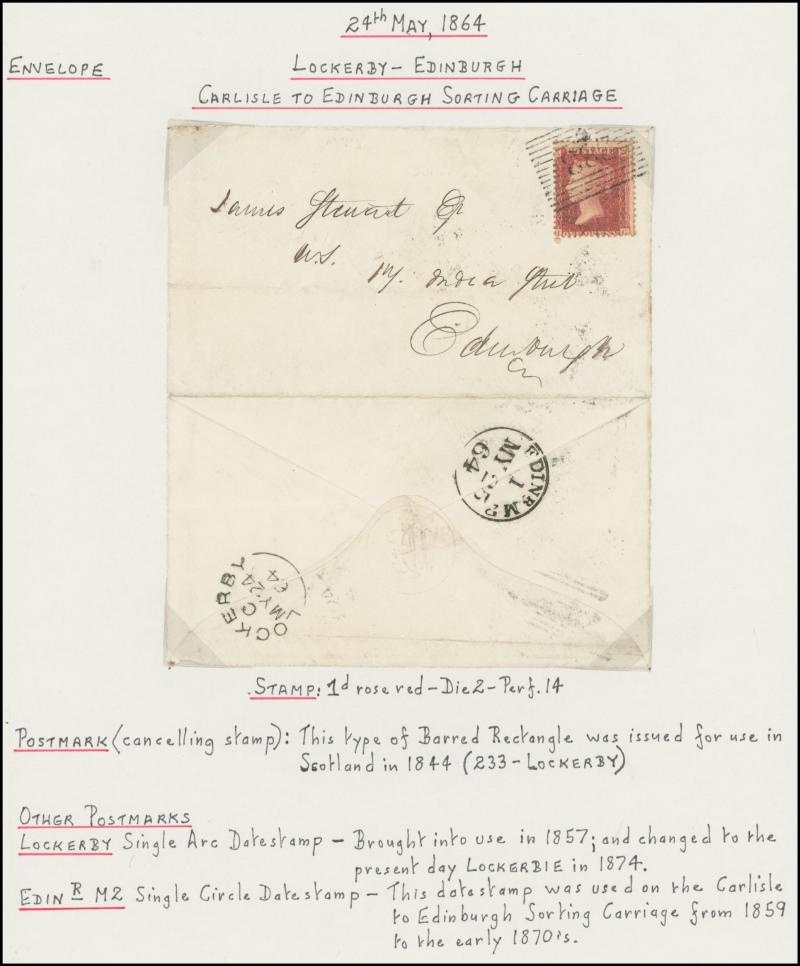 24th May, 1864
ENVELOPE
LOCKERBY – EDINBURGH
CARLISLE TO EDINBURGH SORTING CARRIAGE
James Stewart Esqr
W.S.
India Street
Edinburgh
EDINR M2
1
MY 25
64
LOCKERBY
C
MY 24
64
STAMP: 1d rose red – Die 2 – Perf. 14
POSTMARK (cancelling stamp): This type of Barred Rectangle was issued for use in
Scotland in 1844 (233 – LOCKERBY)
OTHER POSTMARKS
LOCKERBY Single Arc Datestamp – Brought into use in 1857; and changed to the
present day LOCKERBIE in 1874.
EDIN R M2 Single Circle Datestamp – This datestamp was used on the Carlisle
to Edinburgh Sorting Carriage from 1859
to the early 1870's.